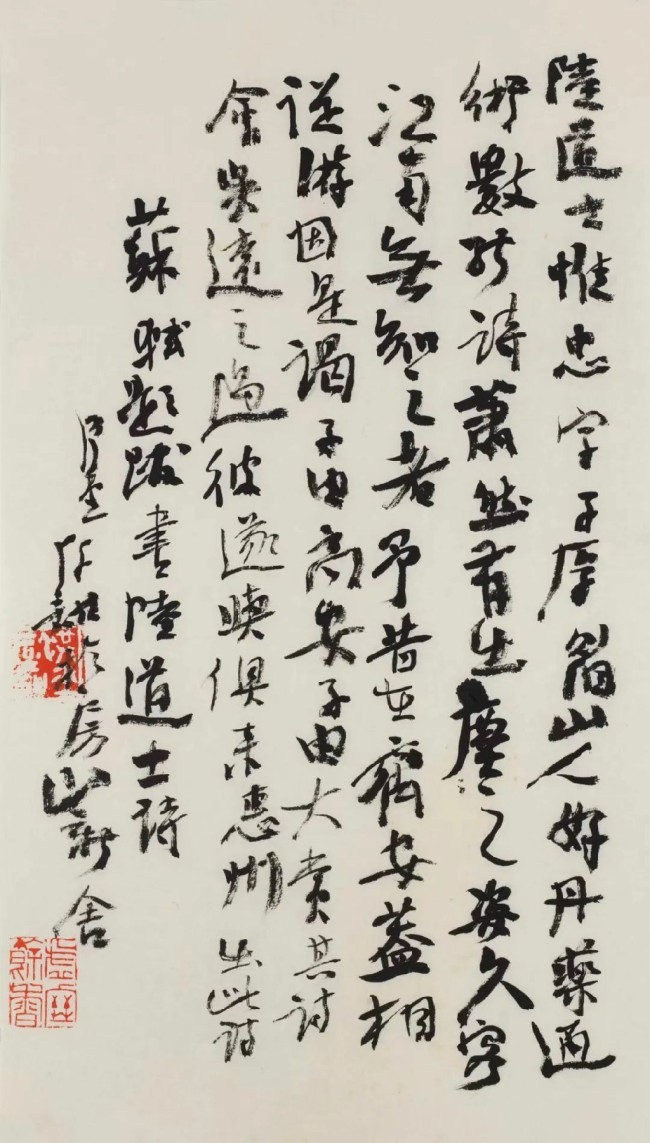 陸道士惟忠字子厚眉山人好丹藥通
術數能詩蕭然有出塵之姿久客
江南無知之者予昔在齊安蓋相
從游因是謁子由高安子由大賞其詩
會吳遠之過彼遂與俱來惠州出此詩
蘇軾題跋書陸道士詩
於房山新舍